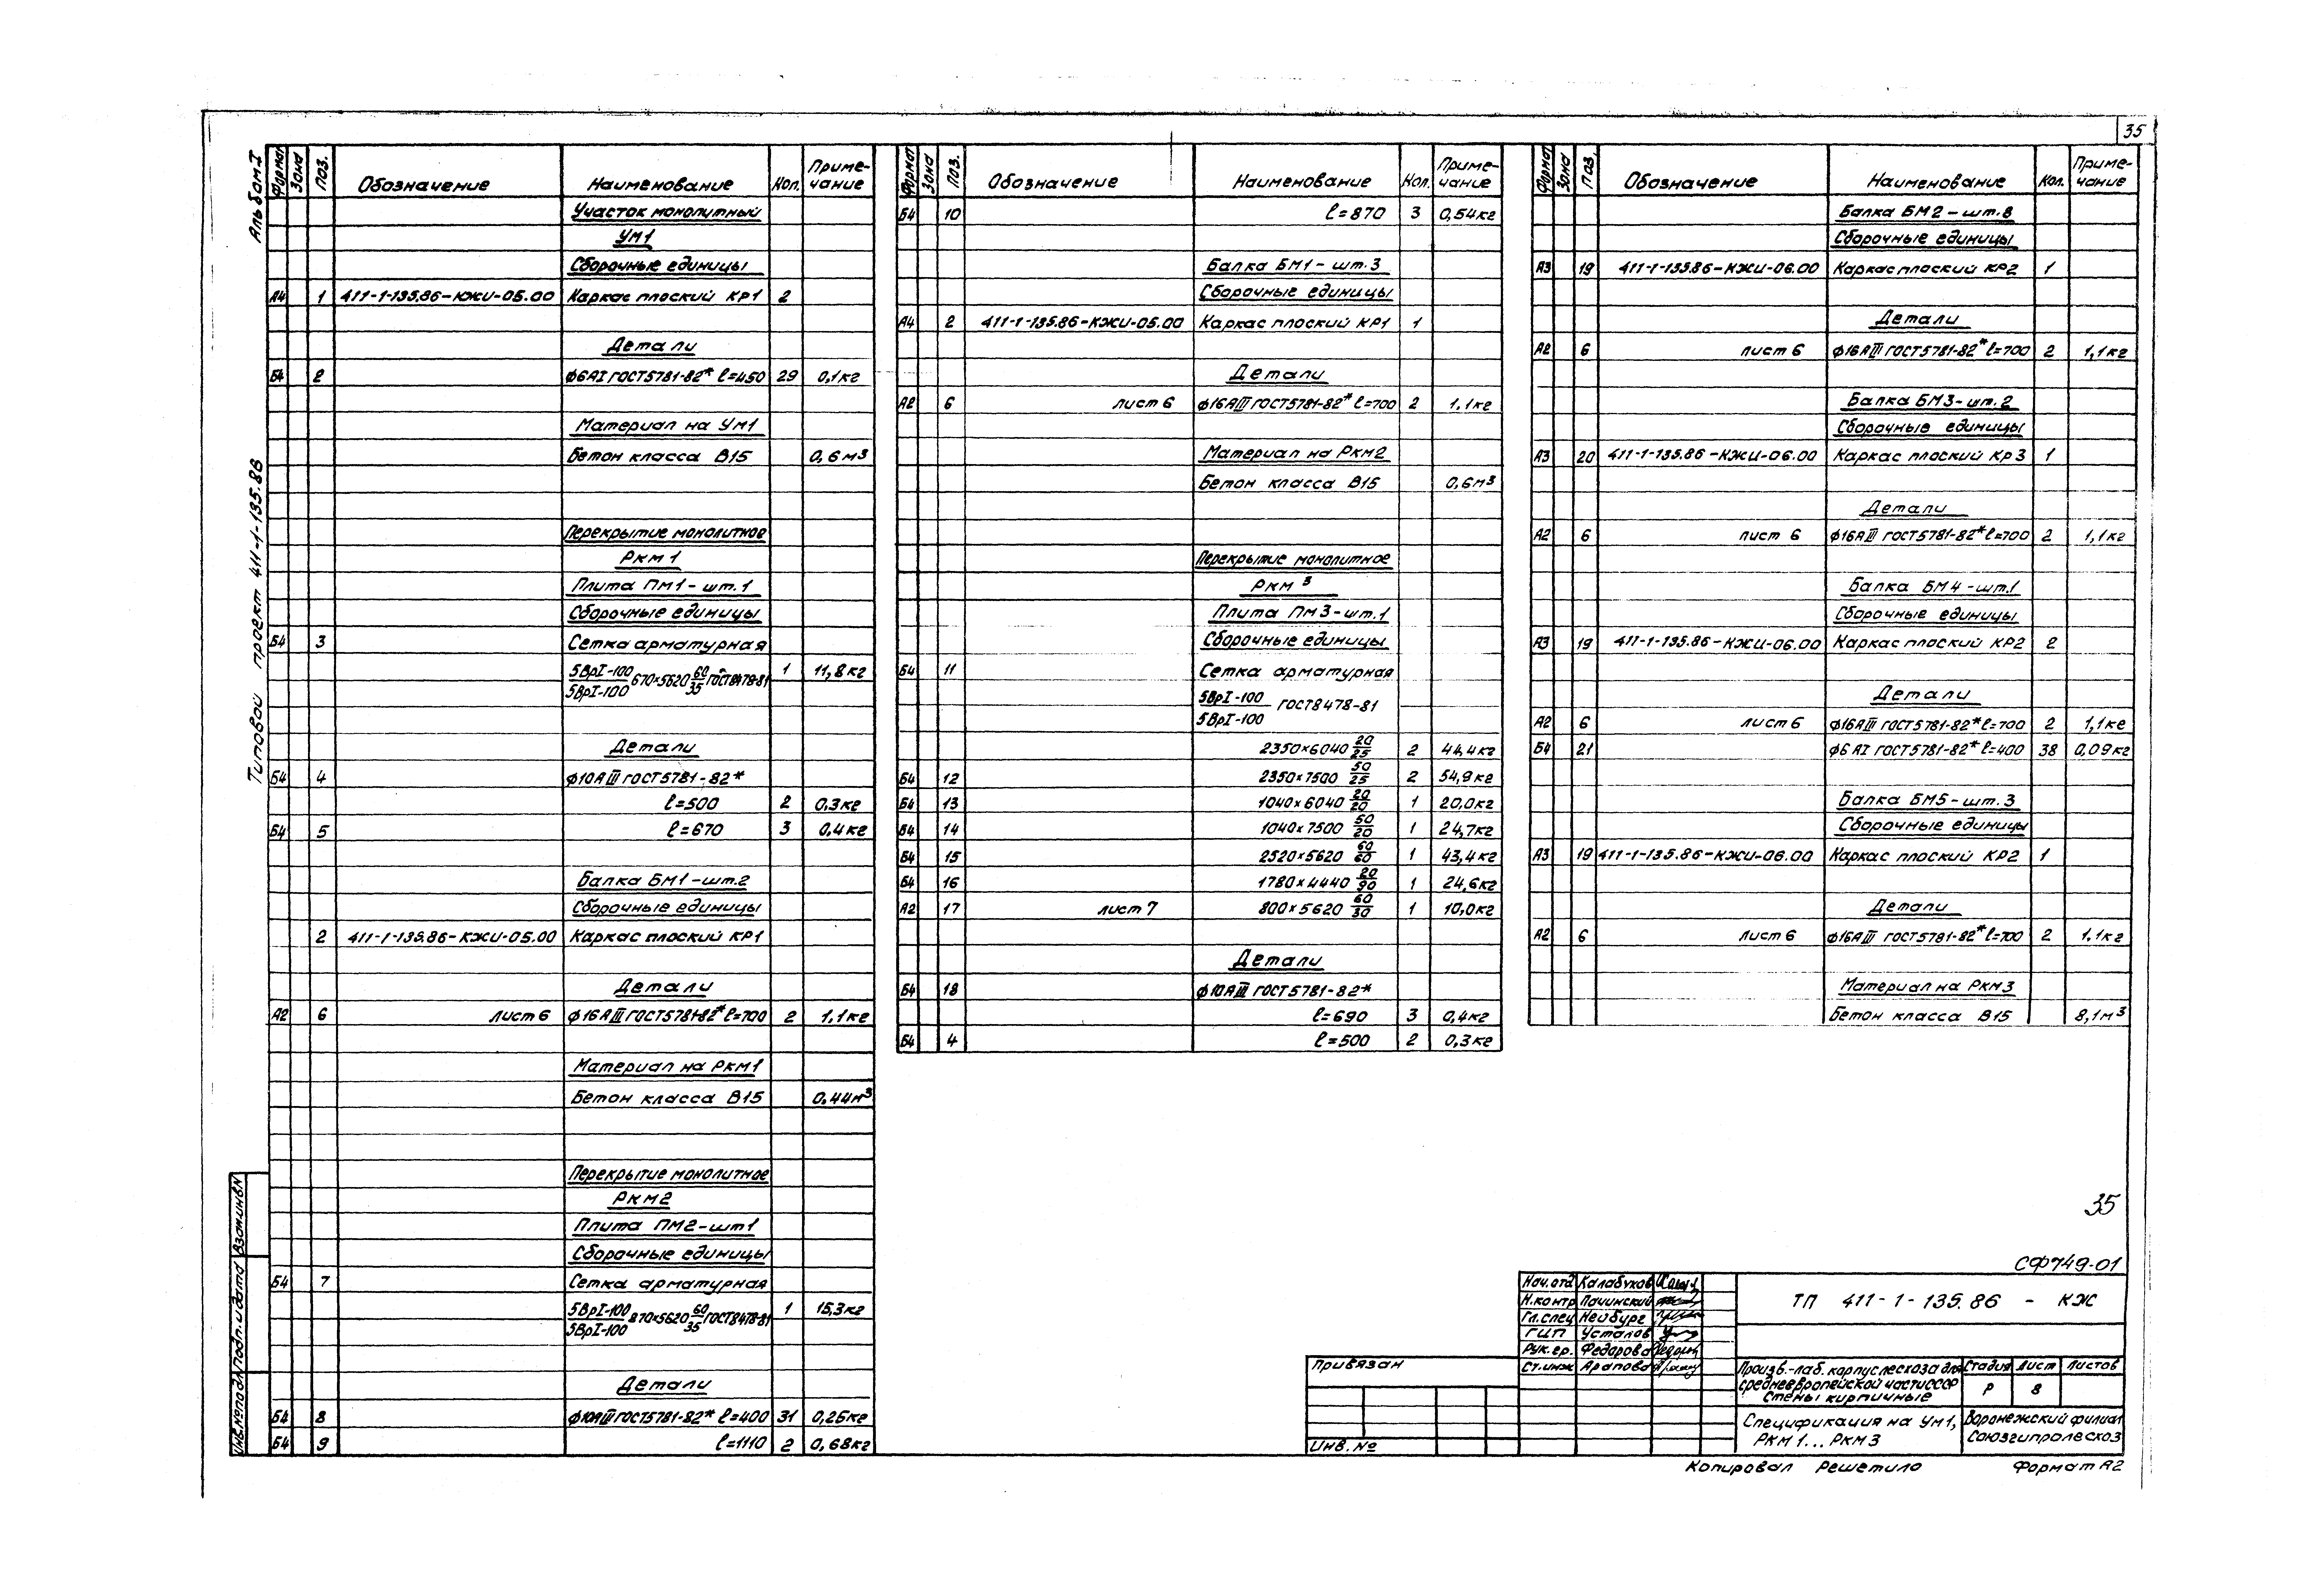 35
Альбом I
Типовой проект 411-1-135.86
Формат Зона Поз. Обозначение Наименование Кол. Приме-
чание
Участок монолитный
Ум1
Сборочные единицы
А4 1 411-1-135.86-КЖИ-05.00 Каркас плоский КР1 2
Детали
Б4 2 ф6АI ГОСТ5781-82* ℓ=450 29 0,1кг
Материал на Ум1
Бетон класса В15 0,6м³
Перекрытие монолитное
РКМ1
Плита ПМ1-шт.1
Сборочные единицы
Б4 3 Сетка арматурная
5ВрI-100/5ВрI-100 670×5620 60/35 ГОСТ8478-81 1 11,8кг
Детали
Б4 4 ф10АIII ГОСТ5781-82*
ℓ=500 2 0,3кг
Б4 5 ℓ=670 3 0,4кг
Балка БМ1-шт.2
Сборочные единицы
2 411-1-135.86-КЖИ-05.00 Каркас плоский КР1
Детали
А2 6 лист 6 ф16АIII ГОСТ5781-82* ℓ=700 2 1,1кг
Материал на РКМ1
Бетон класса В15 0,44м³
Перекрытие монолитное
РКМ2
Плита ПМ2-шт1
Сборочные единицы
Б4 7 Сетка арматурная
5ВрI-100/5ВрI-100 870×5620 60/35 ГОСТ8478-81 1 15,3кг
Детали
Б4 8 ф10АIII ГОСТ5781-82* ℓ=400 31 0,25кг
Б4 9 ℓ=1110 2 0,68кг
Формат Зона Поз. Обозначение Наименование Кол. Приме-
чание
Б4 10 ℓ=870 3 0,54кг
Балка БМ1-шт.3
Сборочные единицы
А4 2 411-1-135.86-КЖИ-05.00 Каркас плоский КР1 1
Детали
А2 6 лист 6 ф16АIII ГОСТ5781-82* ℓ=700 2 1,1кг
Материал на РКМ2
Бетон класса В15 0,6м³
Перекрытие монолитное
РКМ 3
Плита ПМ3-шт.1
Сборочные единицы
Б4 11 Сетка арматурная
5ВрI-100/5ВрI-100 ГОСТ8478-81
2350×6040 20/25 2 44,4кг
Б4 12 2350×7500 50/25 2 54,9кг
Б4 13 1040×6040 20/20 1 20,0кг
Б4 14 1040×7500 50/20 1 24,7кг
Б4 15 2520×5620 60/60 1 43,4кг
Б4 16 1780×4440 20/90 1 24,6кг
А2 17 лист 7 800×5620 60/30 1 10,0кг
Детали
Б4 18 ф10АIII ГОСТ5781-82*
ℓ=690 3 0,4кг
Б4 4 ℓ=500 2 0,3кг
Формат Зона Поз. Обозначение Наименование Кол. Приме-
чание
Балка БМ2-шт.8
Сборочные единицы
А3 19 411-1-135.86-КЖИ-06.00 Каркас плоский КР2 1
Детали
А2 6 лист 6 ф16АIII ГОСТ5781-82* ℓ=700 2 1,1кг
Балка БМ3-шт.2
Сборочные единицы
А3 20 411-1-135.86-КЖИ-06.00 Каркас плоский КР3 1
Детали
А2 6 лист 6 ф16АIII ГОСТ5781-82* ℓ=700 2 1,1кг
Балка БМ4-шт.1
Сборочные единицы
А3 19 411-1-135.86-КЖИ-06.00 Каркас плоский КР2 2
Детали
А2 6 лист 6 ф16АIII ГОСТ5781-82* ℓ=700 2 1,1кг
Б4 21 ф6АI ГОСТ5781-82* ℓ=400 38 0,09кг
Балка БМ5-шт.3
Сборочные единицы
А3 19 411-1-135.86-КЖИ-06.00 Каркас плоский КР2 1
Детали
А2 6 лист 6 ф16АIII ГОСТ5781-82* ℓ=700 2 1,1кг
Материал на РКМ3
Бетон класса В15 8,1м³
35
СФ749-01
Нач.отд Калабухов
Н.контр Пачинский
Гл.спец Нейбург
ГИП Усталов
Рук.гр. Федарова
Ст.инж Арапова
ТП 411-1-135.86 - КЖ
Произв.-лаб. корпус лесхоза для
среднеевропейской части СССР
Стены кирпичные
Стадия Лист Листов
Р 8
Спецификация на Ум1,
РКМ1...РКМ3
Воронежский филиал
Союзгипролесхоз
Привязан
Инв.№
Взам.инв.N
Подп. и дата
Инв.№подл
Копировал Решетило Формат А2